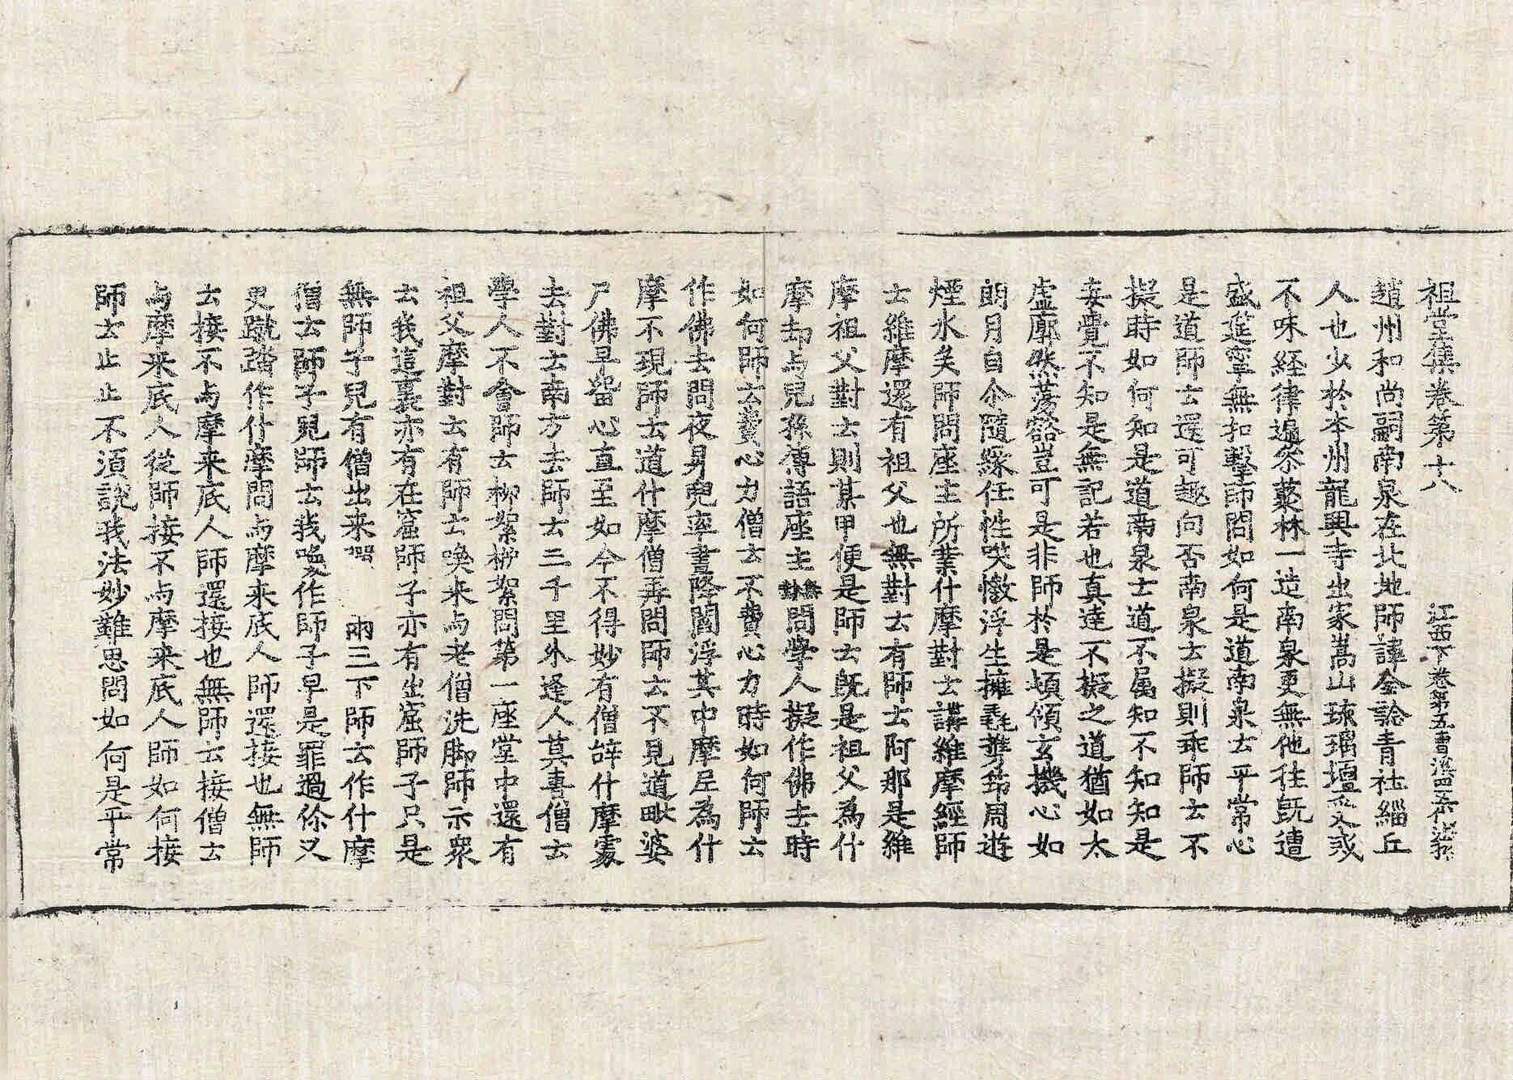 祖堂集卷第十八　江西下卷第五曹溪四五代法孫
趙州和尚嗣南泉在北地師諱全諗青社緇丘
人也少於本州龍興寺出家嵩山琉璃壇受戒
不味經律遍參叢林一造南泉更無他往既遭
盛筵寧無扣擊師問如何是道南泉云平常心
是道師云還可趣向否南泉云擬則乖師云不
擬時如何知是道南泉云道不属知不知知是
妄覺不知是無記若也真達不擬之道猶如太
虛廓然蕩豁豈可是非師於是頓領玄機心如
朗月自尒隨緣任性笑傲浮生擁毳携筇周遊
煙水矣師問座主所業什摩對云講維摩經師
云維摩還有祖父也無對云有師云阿那是維
摩祖父對云則某甲便是師云既是祖父為什
摩却与兒孫傳語座主無對問學人擬作佛去時
如何師云費心力僧云不費心力時如何師云
作佛去問夜昇兜率晝降閻浮其中摩尼為什
摩不現師云道什摩僧再問師云不見道毗婆
尸佛早留心直至如今不得妙有僧辞什摩處
去對云南方去師云三千里外逢人莫喜僧云
學人不會師云柳絮柳絮問第一座堂中還有
祖父摩對云有師云喚来与老僧洗脚師示衆
云我這裏亦有在窟師子亦有出窟師子只是
無師子兒有僧出来彈　兩三下師云作什摩
僧云師子兒師云我喚作師子早是罪過你又
更蹴踏作什摩問与摩来底人師還接也無師
云接不与摩来底人師還接也無師云接僧云
与摩来底人從師接不与摩来底人師如何接
師云止止不須說我法妙難思問如何是平常